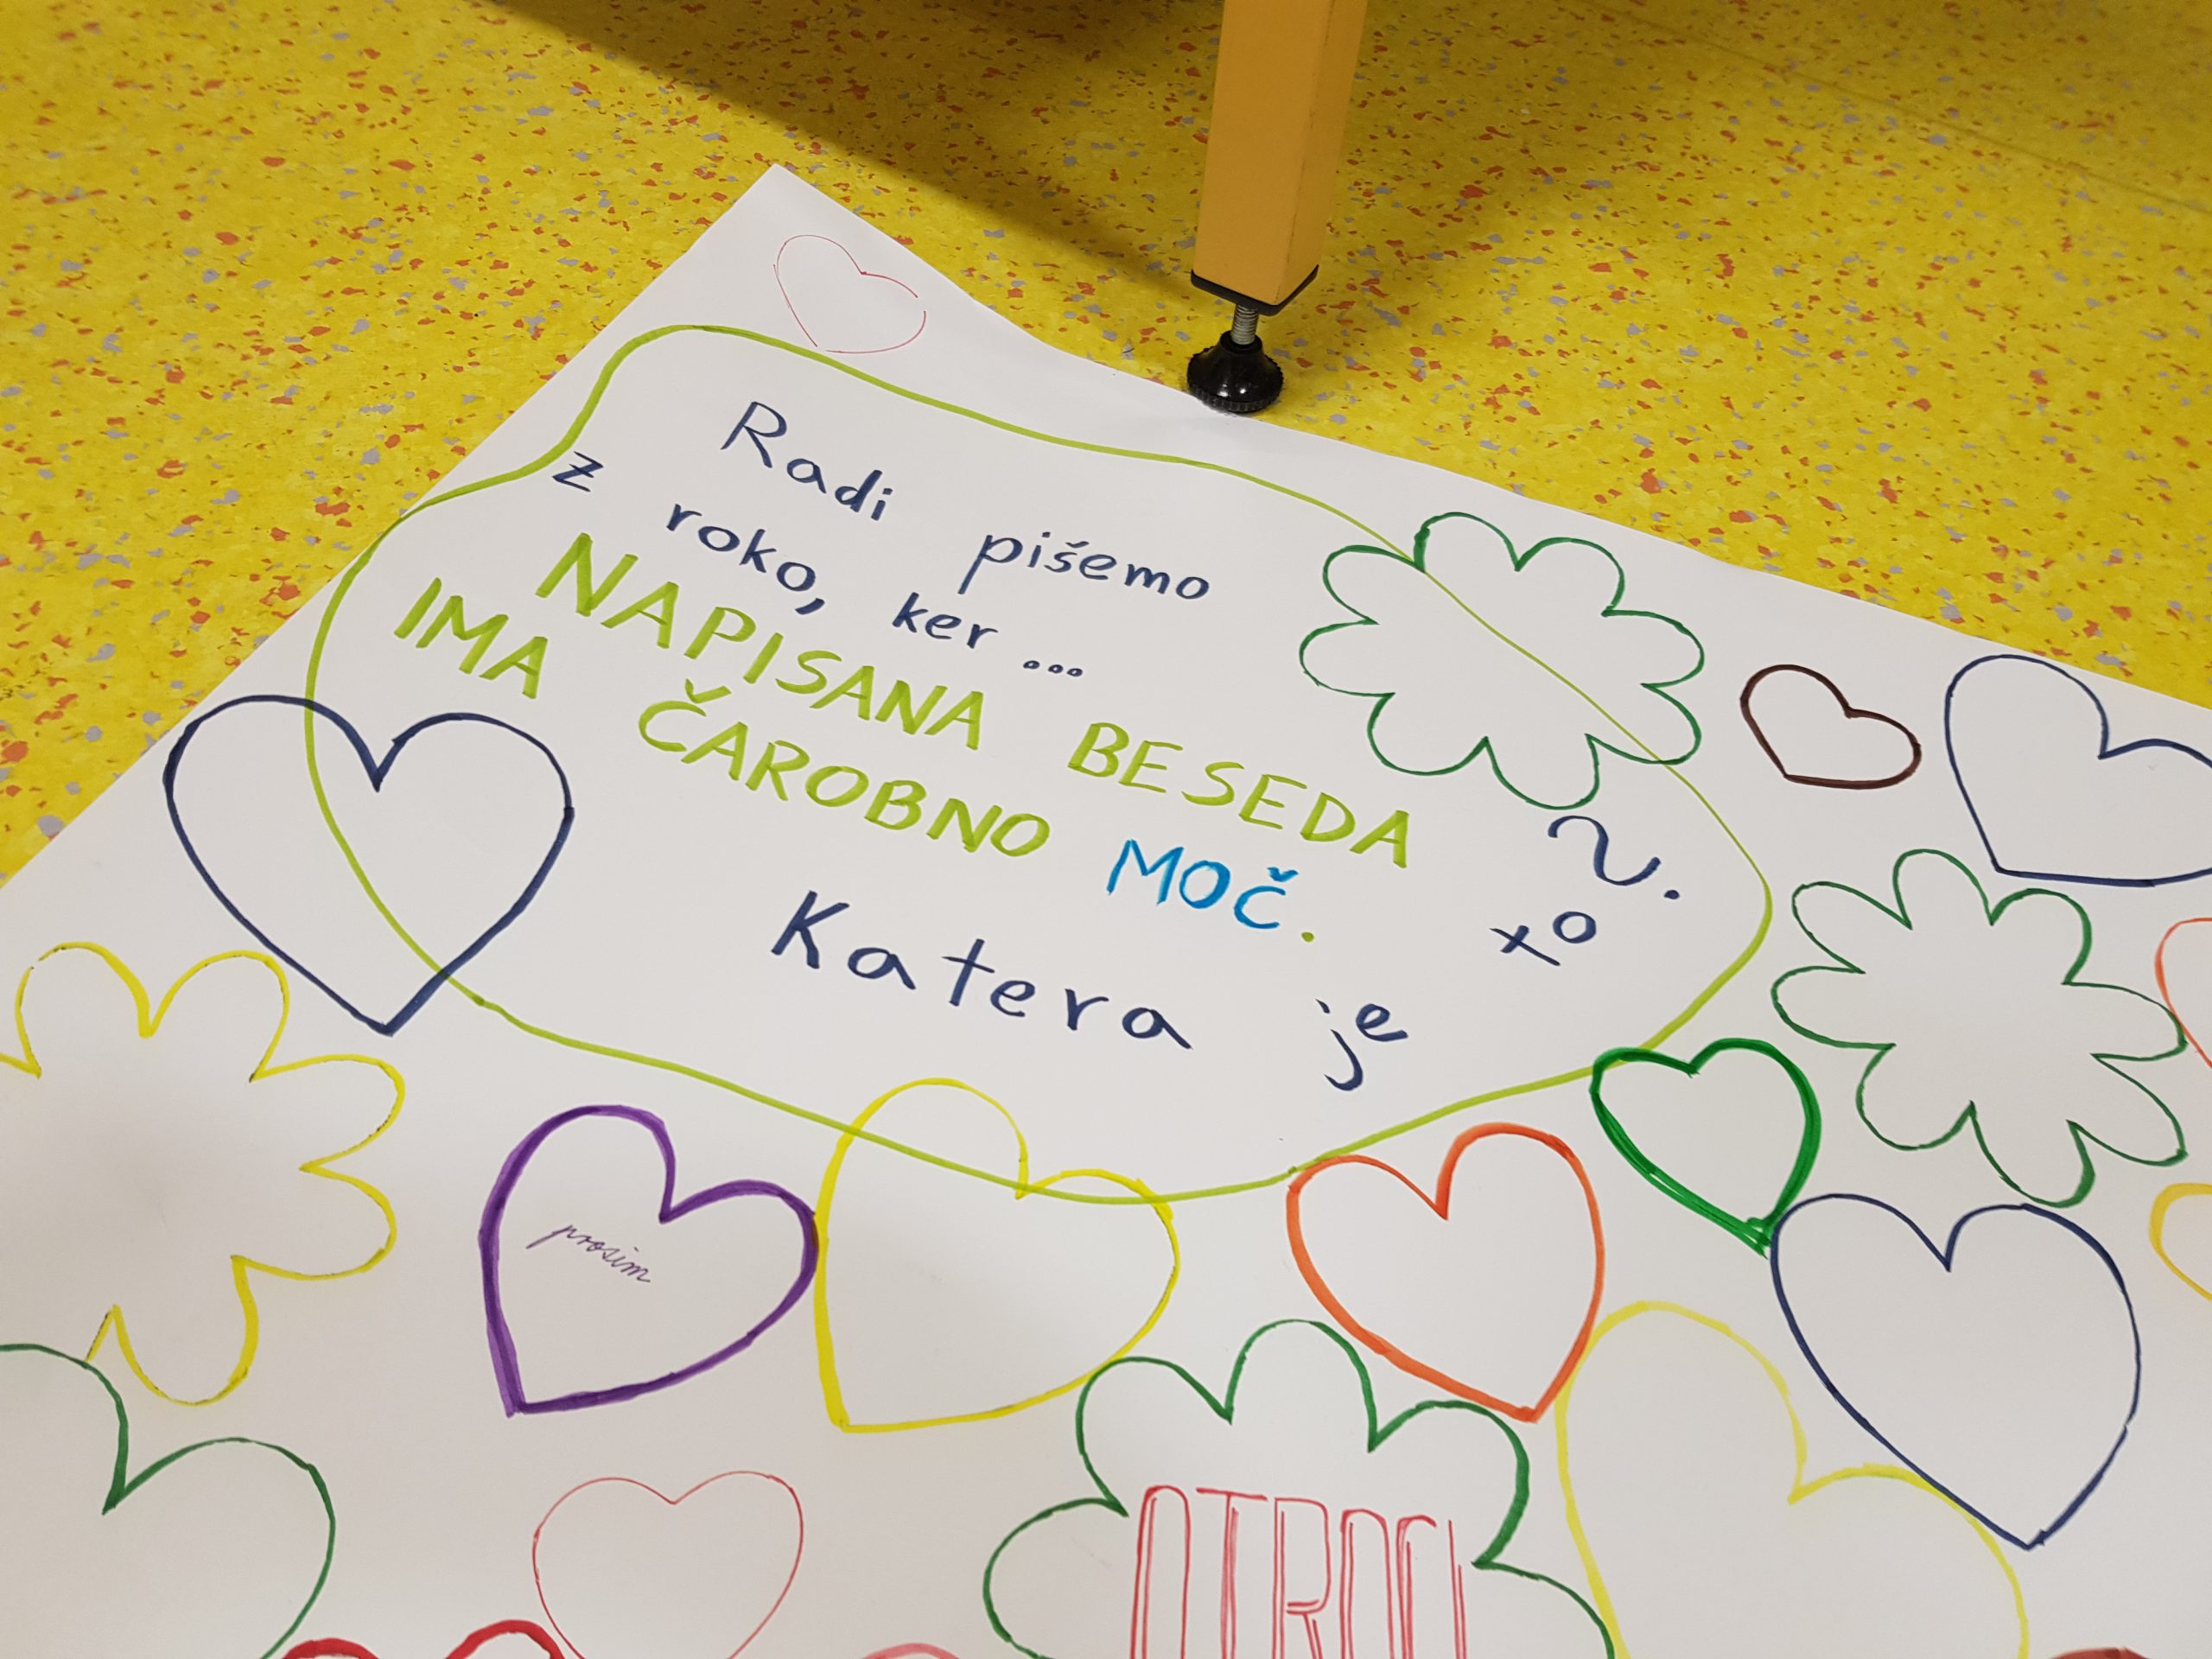 Radi pišemo
z roko, ker ...
NAPISANA BESEDA
IMA ČAROBNO MOČ.
Katera je to?
prosim
OTROCI